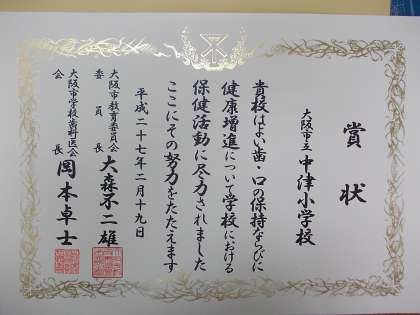 賞状
大阪市立 中津小学校
貴校はよい歯 口の保持ならびに
健康増進について学校における
保健活動に尽力されました
ここにその努力をたたえます
平成二十七年二月十九日
大阪市教育委員会
委員長 大森不二雄
大阪市学校歯科医会
会長 岡本卓士